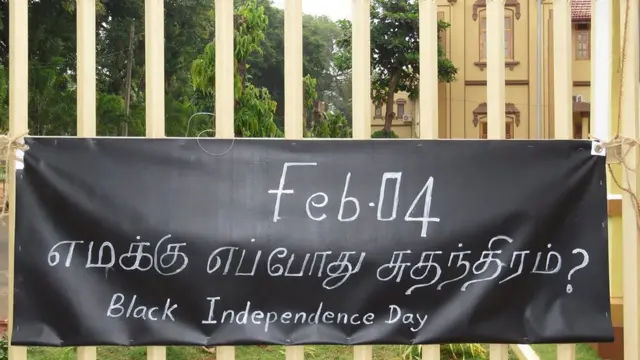 Feb-04
எமக்கு எப்போது சுதந்திரம்?
Black Independence Day